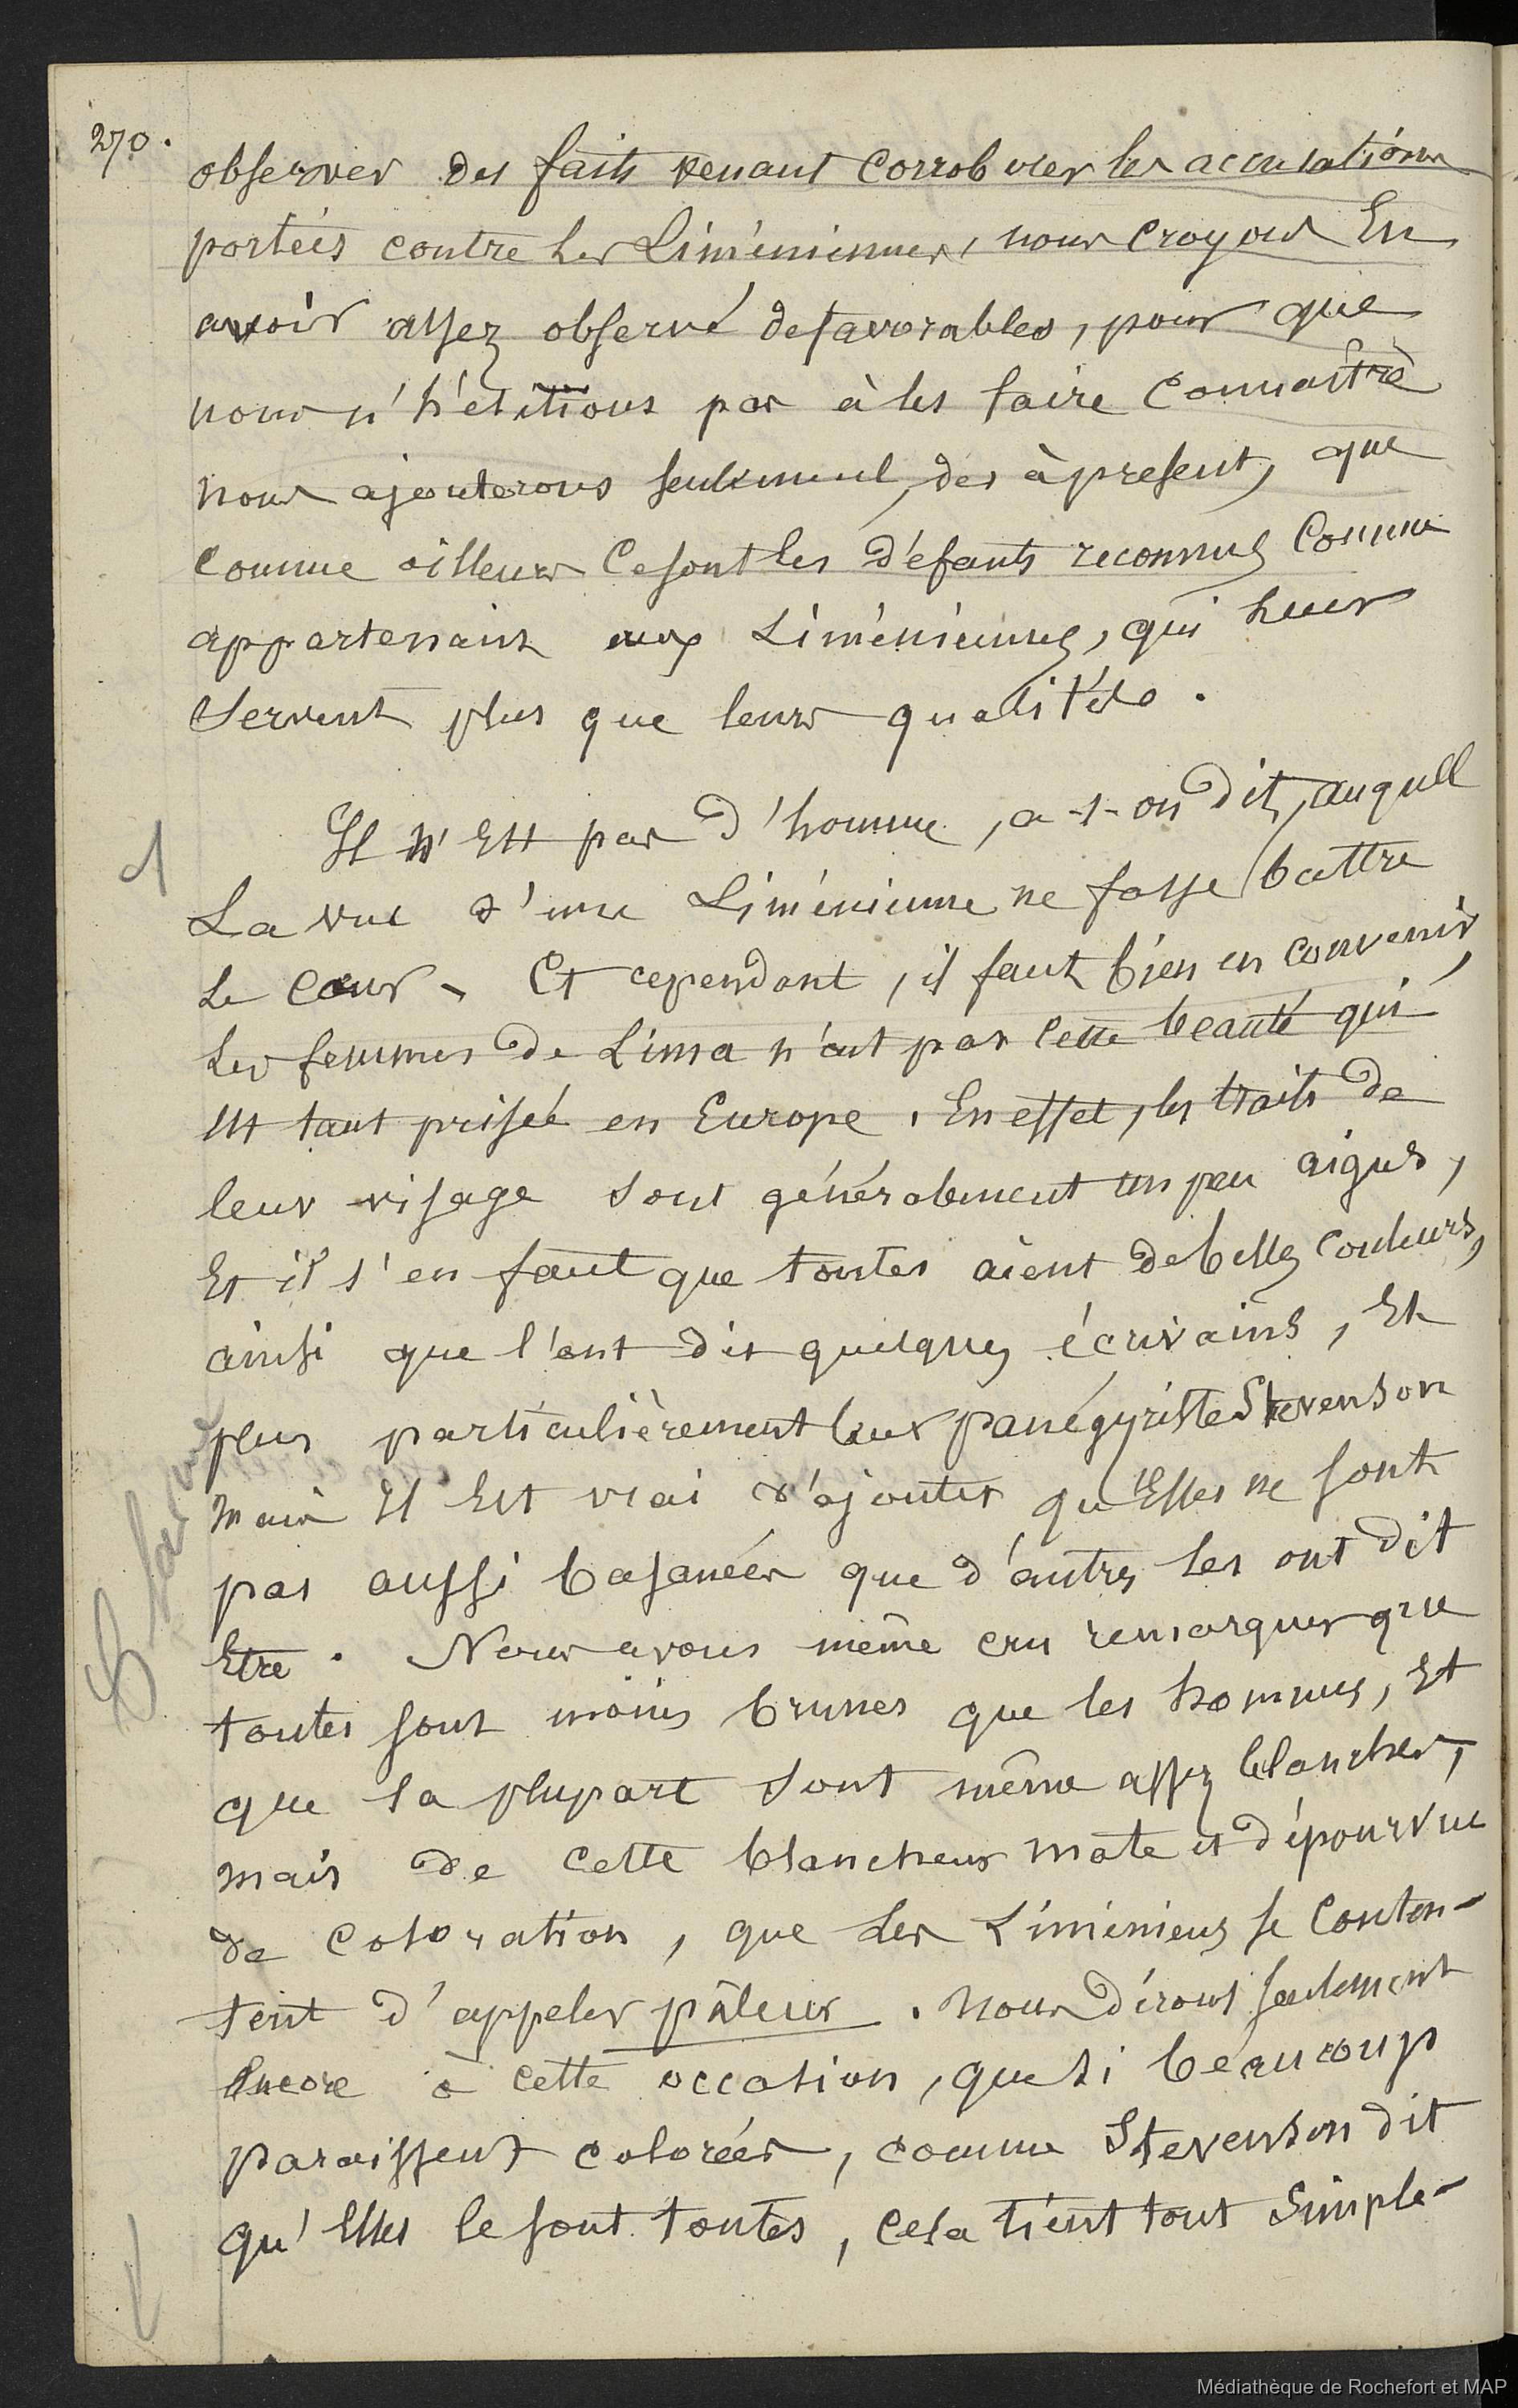 270.
observer des faits venant corroborer les accusations
portées contre les Liméniennes, nous croyons En
avoir assez observé defavorables, pour que
nous n'hésitions pas à les faire Connaître
nous ajouterons seulement, des àpresent, que
comme ailleurs Cesont les défauts reconnus Comme
appartenant aux Liméniennes, qui leur
Servent plus que leurs qualités.
Il n'Est pas d'homme, a-t-on dit, auquell
La vue d'une Liménienne ne fasse battre
Le Cœur. Et cependant, il faut bien en convenir,
Les femmes de Lima n'ont pas cette beauté qui
Est tant prisée en Europe. En effet, les traits de
leur visage sont généralement un peu aigus,
Et il s'en faut que toutes aient de belles couleurs,
ainsi que l'ont dit quelques écrivains, Et
plus particulièrement leur panégyriste Stevenson
mais Il Est vrai d'ajouter qu'Elles ne sont
pas aussi basanées que d'autres les ont dit
Etre. Nous avons même cru remarquer que
toutes sont moins brunes que les hommes, Et
que la plupart sont même assez blanches,
mais de cette blancheur mate et dépourvue
de coloration, que les Liméniens se Conten-
tent d'appeler pâleur. Nous dirons seulement
Encore à cette occasion, que si beaucoup
paraissent colorées, comme Stevenson dit
qu'Elles le sont toutes, cela tient tout simple-
Médiathèque de Rochefort et MAP